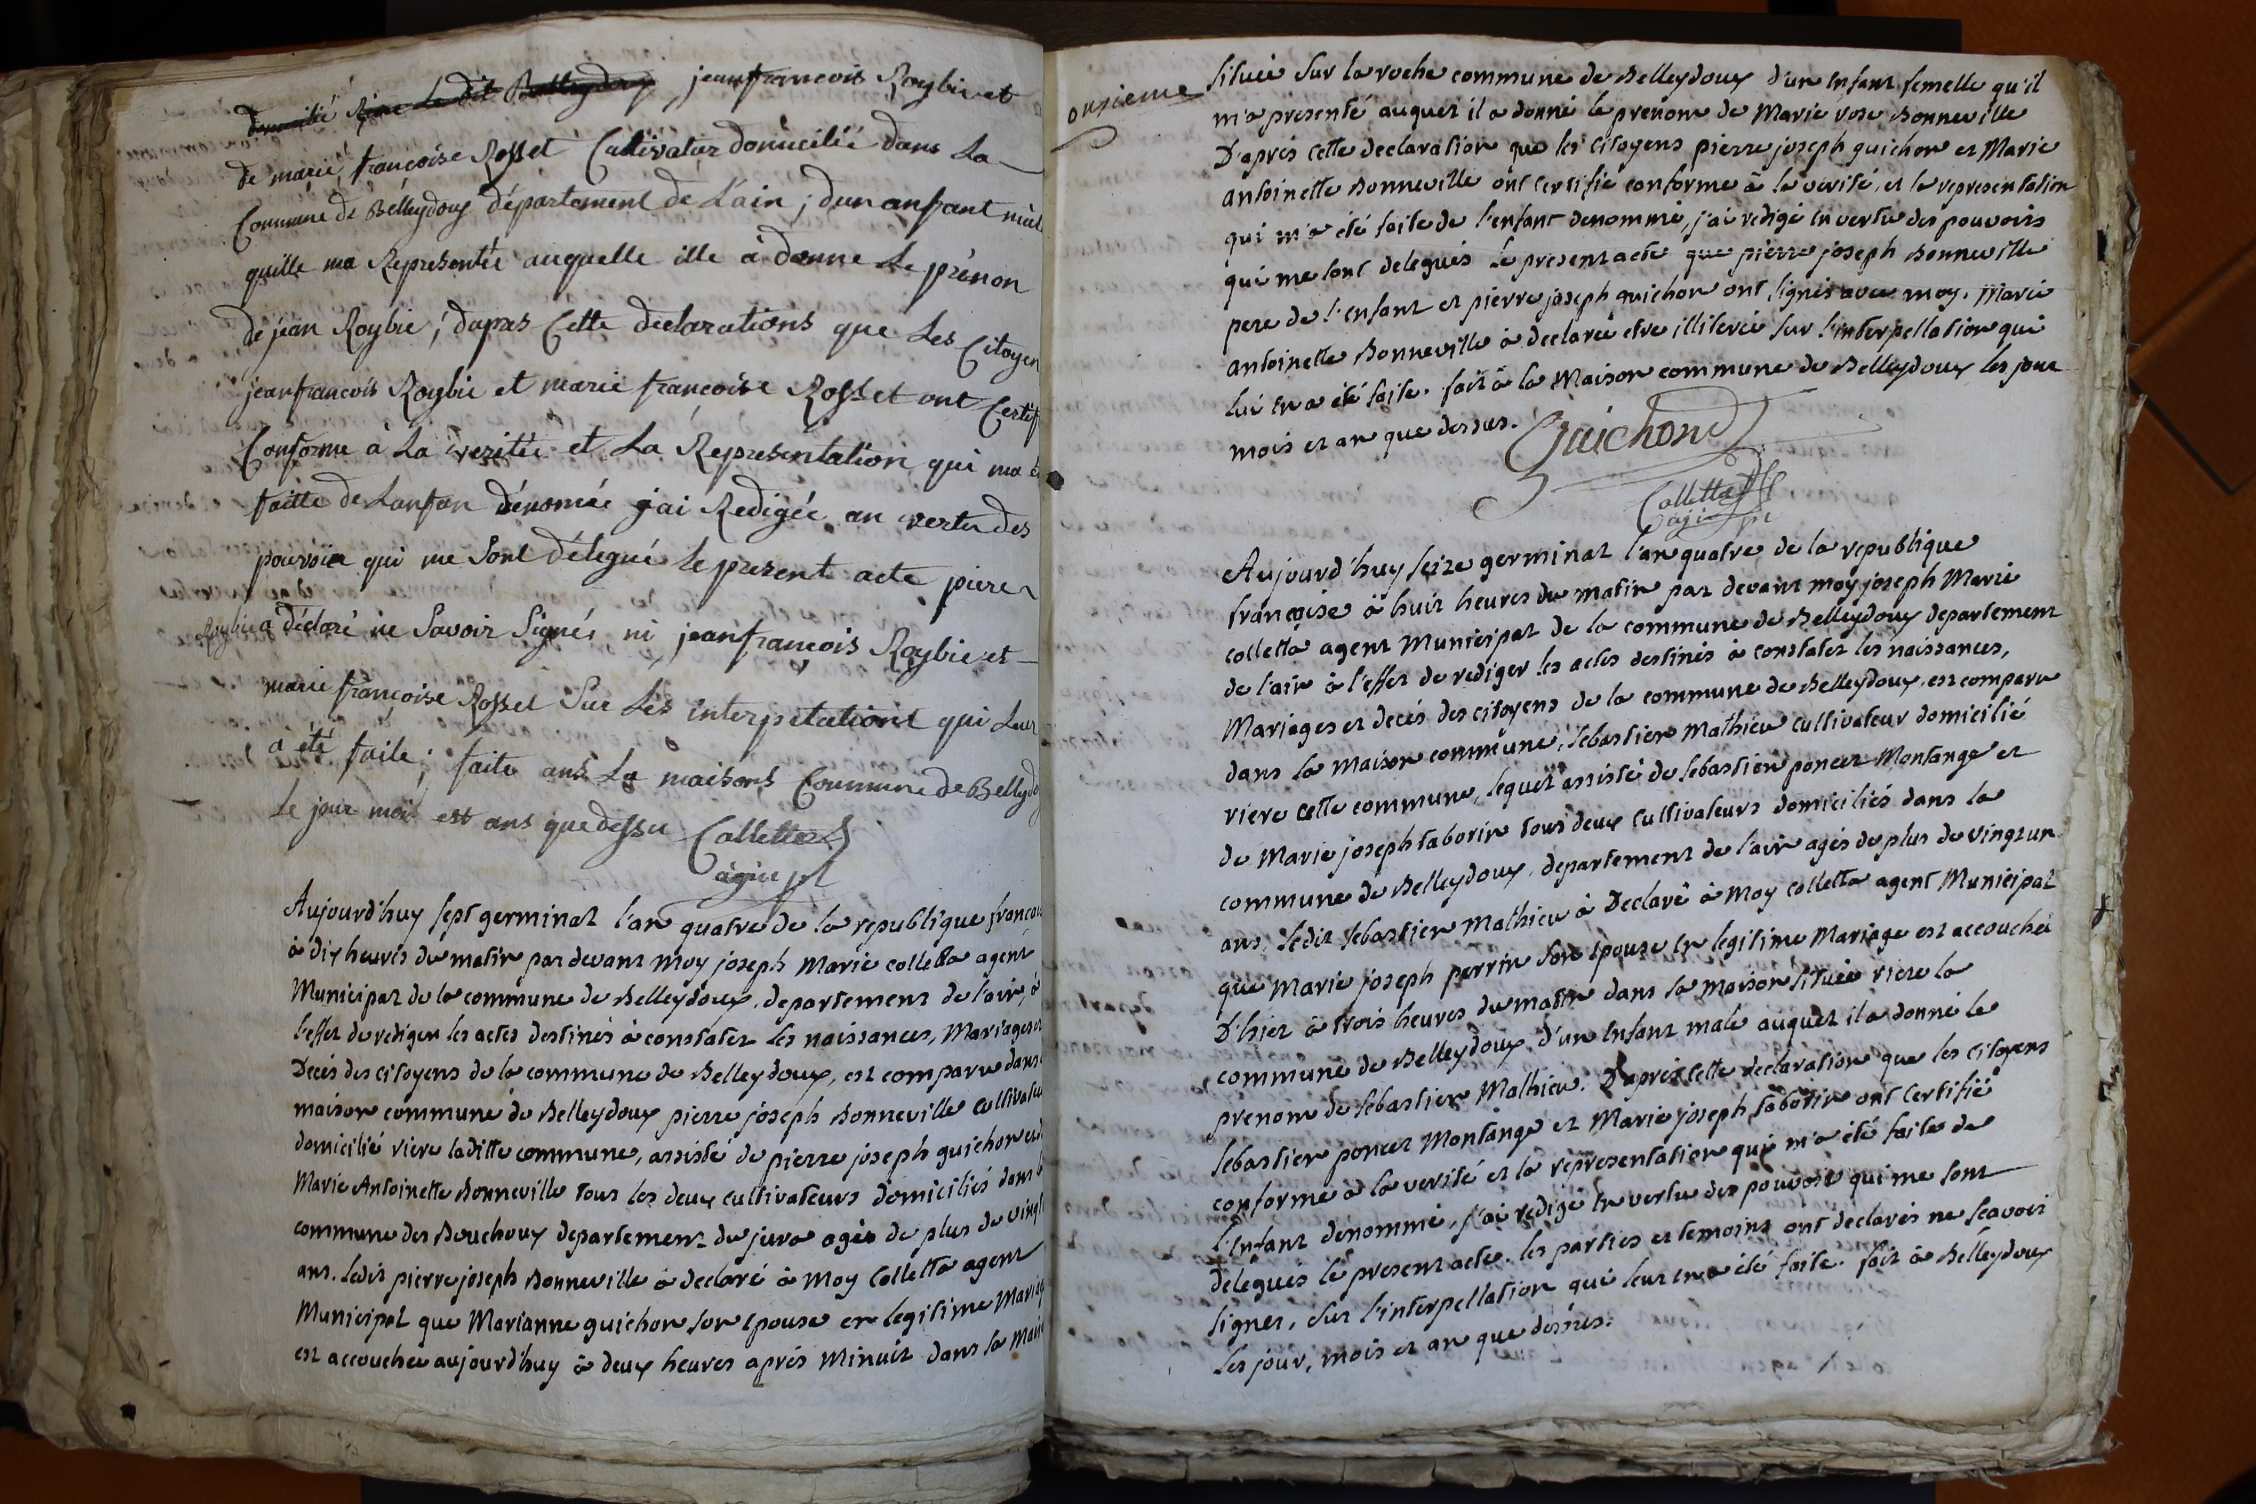 domicilié Riere Le dit Belleydoux jeanfrancois Roybie et
de marie françoise Rosset Cultivatur domiciliéé dans La
Commune de Belleydoux département de L'ain ; dun anfant mâl
quille ma Representée auquelle ille à donne Le prénon
de jean Roybie ; dapres Cette declarations que Les Citoyen
jeanfrancois Roybie et marie francoise Rosset ont Certif
Conforme à La veritée et La Representation qui ma é
faitte de Lanfan dénomée j'ai Redigée an vertu des
pouvoir qui me Sont délegué le present acte piere
Roybie a déclaré ne Savoir Signér ni jeanfrançois Roybie et
marie françoise Rosset Sur Les interpetationt qui Leur
a été faite ; faite ans La maisons Commune de Belleydo
Le jour mois est ans que dessu Colletta
agin pl
Aujourd'huy sept germinal l'an quatre de la republique francai
à dix heures du matin par devant moy joseph Marie colletta agent
Municipal de la commune de Belleydoux, departement de l'ain, à
l'effet de rediger les actes destinés à constater les naissances, Mariages et
Decés des citoyens de la commune de Belleydoux, est comparu dans
maison commune de Belleydoux pierre joseph Bonneville cultivateu
domicilié riere laditte commune, assisté de pierre joseph guichon et d
Marie Antoinette Bonneville tous les deux cultivateurs domiciliés dans l
commune des Bouchoux departement du jura agés de plus de vingt
ans. Ledit pierre joseph Bonneville à declaré à moy Colletta agent
Municipal que Marianne guichon son epouse en legitime Mariag
est accouchée aujourd'huy à deux heures aprés minuit dans la Mais
onzieme
située sur la roche commune de Belleydoux d'un enfant femelle qu'il
m'a presenté auquel il a donné le prenom de Marie rose Bonneville
D'aprés cette declaration que les citoyens pierre joseph guichon et Marie
antoinette Bonneville ont certifié conforme à la verité, et la representation
qui m'a été faite de l'enfant denommé, j'ai redigé en vertu des pouvoirs
qui me sont delegués le present acte que pierre joseph Bonneville
pere de l'enfant et pierre joseph guichon ont signés avec moy. Marie
antoinette Bonneville à declarée etre illiterée sur l'interpellation qui
lui en a été faite. fait à la Maison commune de Belleydoux les jour
mois et an que dessus. Guichond
Colletta
agin pl
Aujourd'huy seize germinal l'an quatre de la republique
françoise à huit heures du matin par devant moy joseph Marie
colletta agent Municipal de la commune de Belleydoux departement
de l'ain à l'effet de rediger les actes destinés à constater les naissances,
Mariages et decés des citoyens de la commune de Belleydoux, est comparu
dans la maison commune, sebastien Mathieu cultivateur domicilié
riere cette commune, lequel assisté de sebastien poncet Montange et
de Marie joseph taborin tous deux cultivateurs domiciliés dans la
commune de Belleydoux, departement de l'ain agés de plus de vingt un
ans. Ledit sebastien Mathieu à Declaré à moy colletta agent Municipal
que Marie joseph perrin son epouse en legitime Mariage est accouchée
D'hier à trois heures du matin dans la maison située riere la
commune de Belleydoux, d'un enfant male auquel il a donné le
prenom de sebastien Mathieu. D'aprés cette declaration que les citoyens
sebastien poncet Montange et Marie joseph taborin ont certifié
conforme à la verité et la representation qui m'a été faite de
l'enfant denommé, j'ai redigé en vertu des pouvoirs qui me sont
delegués le present acte. les parties et temoins ont declarés ne sçavoir
signer, sur l'interpellation qui leur en a été faite. fait à Belleydoux
les jour, mois et an que dessus.